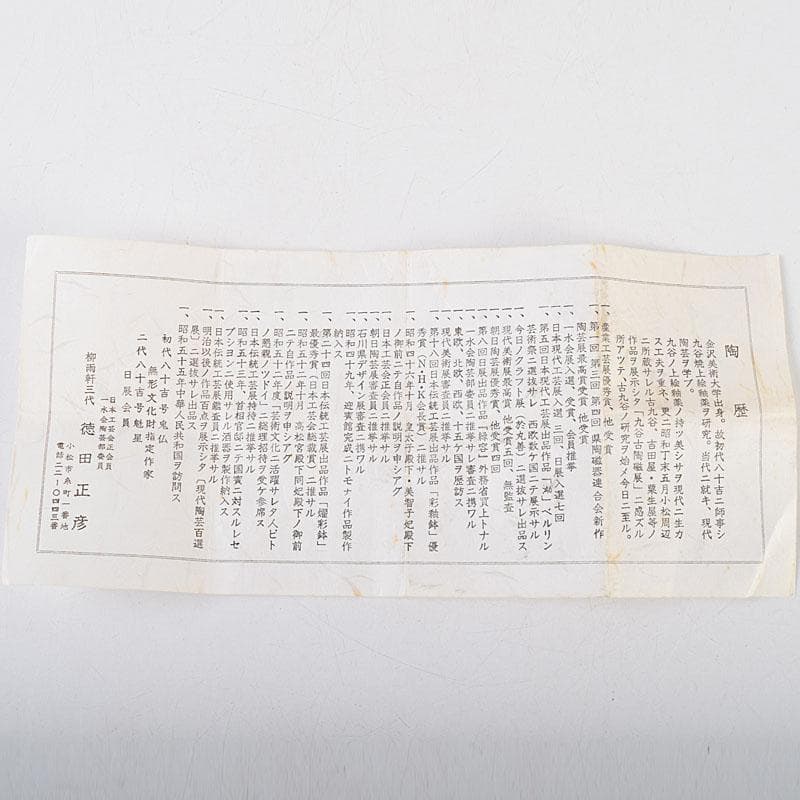 陶歴
金沢美術大学出身。故初代八十吉ニ師事シ
九谷焼上絵釉薬ヲ研究。当代ニ就キ、現代
陶芸ヲ学ブ。
九谷ノ上絵釉薬ノ持ツ美シサヲ現代ニ生カ
ス工夫ヲ重ネ、更ニ昭和丁末五月小松周辺
ニ所蔵サレル古九谷、吉田屋・粟生屋等ノ
作品ヲ展示シタ「九谷古陶磁展」ニ感ズル
所アツテ、古九谷ノ研究ヲ始メ今日ニ至ル。
一、産業工芸展優秀賞、他受賞
一、第一回 第三回 第四回 県陶磁器連合会新作
陶芸展最高賞受賞、他受賞
一、一水会展入選、受賞、会員推挙
一、日本現代工芸展入選 三回、日展入選七回
一、第五回日本現代工芸展出品作品「潮」ベルリン
芸術祭ニ選抜サレ、西欧数ケ国ニテ展示サル
一、今日ノクラフト展（於丸善）ニ選抜サレ出品ス
一、現代美術展最高賞 他受賞五回、無監査
一、朝日陶芸展優秀賞、他受賞四回
一、第八回日展出品作品「緑容」外務省買上トナル
一、一水会陶芸部委員ニ推挙サレ審査ニ携ワル
一、東欧、北欧、西欧、十五ケ国ヲ歴訪ス
一、現代美術展審査員ニ推挙サル
一、第十八回日本伝統工芸展出品作品「彩釉鉢」優
秀賞（N・H・K会長賞）ニ推サル
一、昭和四十六年十月 皇太子殿下・美智子妃殿下
ノ御前ニテ自作品ノ説明ヲ申シアグ
一、日本工芸会正会員ニ推挙サル
一、朝日陶芸展審査員ニ推挙サル
一、石川県デザイン展審査ニ携ワル
一、昭和四十九年、迎賓館完成ニトモナイ作品製作
納入ス
一、第二十四回日本伝統工芸展出品作品「燿彩鉢」
最優秀賞（日本工芸会総裁賞）ニ推サル
一、昭和五十二年十月 高松宮殿下同妃殿下ノ御前
ニテ自作品ノ説明ヲ申シアグ
一、昭和五十二年度「芸術文化ニ活躍サレタ人ビト
ノ懇親ノツドイ」ニ総理招待ヲ受ケ参席ス
一、日本伝統工芸展特待ニ推挙サル
一、昭和五十三年、首相官邸ニテ国賓ニ対スルレセ
プシヨンニ使用サレル酒器ヲ製作納入ス
一、日本伝統工芸展鑑査員ニ推挙サル
一、明治以後ノ作品百点ヲ展示シタ〔現代陶芸百選
展〕ニ選抜サレ出品ス。
一、昭和五十五年中華人民共和国ヲ訪問ス
初代八十吉号鬼仏
無形文化財指定作家
二代八十吉号魁星
日展会員
日本工芸会正会員
一水会陶芸部委員
柳雨軒三代 徳田正彦
小松市糸町一番地
電話二二-〇四四三番